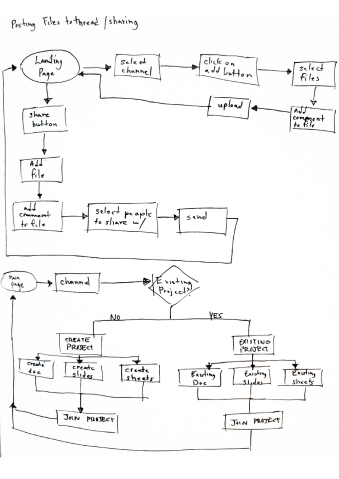 Posting Files to thread / sharing
Landing
Page
select
channel
click on
add button
select
files
Add
comment
to file
upload
share
button
Add
file
add
comment
to file
select people
to share w/
send
Main
page
channel
Existing
Project?
NO
YES
CREATE
PROJECT
EXISTING
PROJECT
create
doc
create
slides
create
sheets
Existing
Doc
Existing
slides
Existing
sheets
JOIN PROJECT
JOIN PROJECT